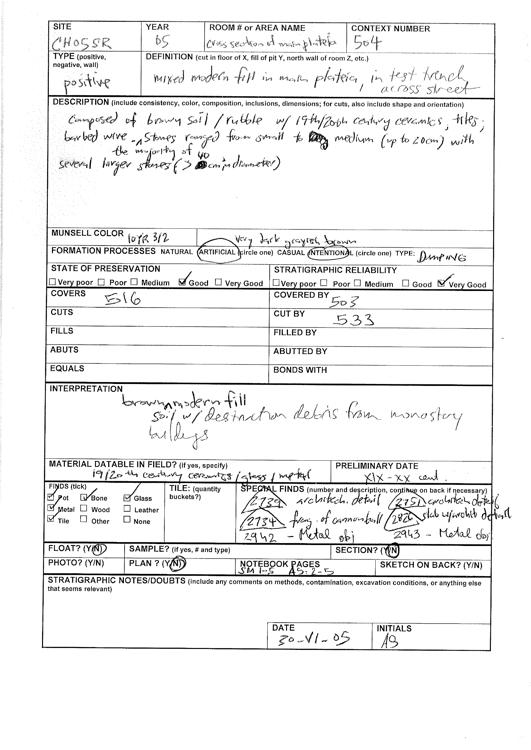 SITE YEAR ROOM # or AREA NAME CONTEXT NUMBER
CHOSSR 05 cross section of main plateia 504
TYPE (positive, negative, wall) DEFINITION (cut in floor of X, fill of pit Y, north wall of room Z, etc.)
positive mixed modern fill in main plateia, in test trench,
across street
DESCRIPTION (include consistency, color, composition, inclusions, dimensions; for cuts, also include shape and orientation)
Composed of brown soil / rubble w/ 19th/20th century ceramics, tiles,
barbed wire. Stones ranged from small to medium (up to 20cm) with
the majority of
several larger stones (> 40 cm in diameter)
MUNSELL COLOR 10YR 3/2 very dark grayish brown
FORMATION PROCESSES NATURAL ARTIFICIAL (circle one) CASUAL INTENTIONAL (circle one) TYPE: DUMPING
STATE OF PRESERVATION STRATIGRAPHIC RELIABILITY
Very poor Poor Medium Good Very Good Very poor Poor Medium Good Very Good
COVERS 516 COVERED BY 503
CUTS CUT BY 533
FILLS FILLED BY
ABUTS ABUTTED BY
EQUALS BONDS WITH
INTERPRETATION
brown modern fill
soil w/ destruction debris from monastery
buildings
MATERIAL DATABLE IN FIELD? (if yes, specify) PRELIMINARY DATE
19/20th century ceramics / glass / metal XIX-XX cent.
FINDS (tick) TILE: (quantity buckets?) SPECIAL FINDS (number and description, continue on back if necessary)
Pot Bone Glass 2739 architech. detail 2751 architech detail
Metal Wood Leather 2734 frag. of cannonball slab w/archit detail
Tile Other None 2942 - Metal obj 2943 - Metal obj
FLOAT? (Y/N) SAMPLE? (if yes, # and type) SECTION? (Y/N)
PHOTO? (Y/N) PLAN? (Y/N) NOTEBOOK PAGES SM 1-5 AS: 2-5 SKETCH ON BACK? (Y/N)
STRATIGRAPHIC NOTES/DOUBTS (include any comments on methods, contamination, excavation conditions, or anything else
that seems relevant)
DATE INITIALS
30-VI-05 AS